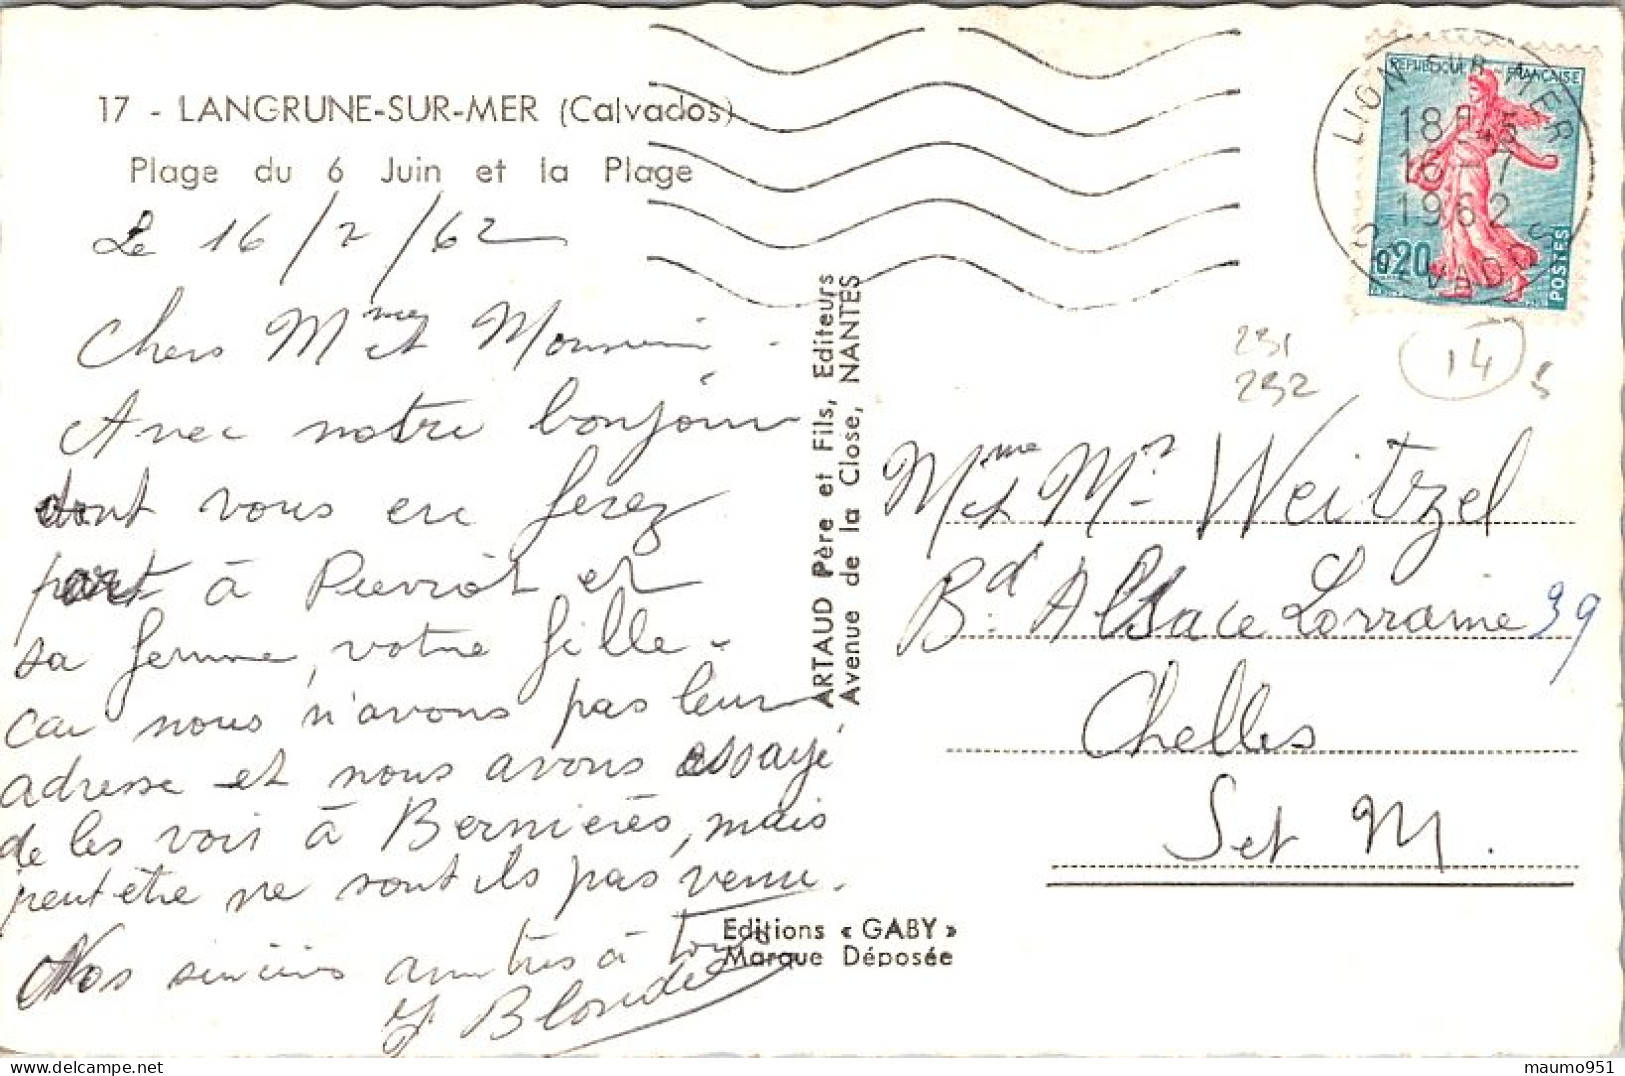 17 - LANGRUNE-SUR-MER (Calvados)
Plage du 6 Juin et la Plage
Le 16/7/62
Chers Mme et Monsieur.
Avec notre bonjour
dont vous en ferez
part à Pierrot et
sa femme, votre fille.
car nous n'avons pas leur
adresse et nous avons essayé
de les voir à Bernières, mais
peut être ne sont ils pas venu.
Nos sincères amitiés à tous
Y. Blondel
ARTAUD Père et Fils, Editeurs
Avenue de la Close, NANTES
Editions « GABY »
Marque Déposée
REPUBLIQUE FRANÇAISE
0,20
POSTES
LION SUR MER
18H45
16-7
1962
CALVADOS
231
232
14
s
Mme et Mr Weitzel
Bd Alsace Lorraine 39
Chelles
S et M.
maumo951